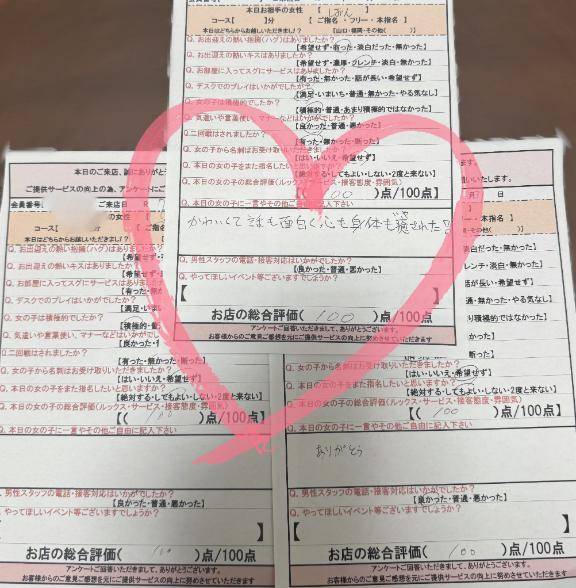 本日お相手の女性 【 しおん 】
コース【 】分 【 ご指名 ・ フリー ・ 本指名 】
本日はどちらからお越しいただきましたか? 【山口・福岡・その他( )】
Q. お出迎えの熱い抱擁(ハグ)はありましたか?
【希望せず・有った・淡白だった・無かった】
Q. お出迎えの熱いキスはありましたか?
【希望せず・濃厚・フレンチ・淡白・無かった】
Q. お部屋に入ってスグにサービスはありましたか?
【有った・無かった・話が長い・希望せず】
Q. デスクでのプレイはいかがでしたか?
【満足・いまいち・普通・無かった・やる気なし】
Q. 女の子は積極的でしたか?
【積極的・普通・あまり積極的ではなかった】
Q. 気遣いや言葉使い、マナーなどはいかがでしたか?
【良かった・普通・悪かった】
Q. 二回戦はされましたか?
【有った・無かった・断った】
Q. 女の子から名刺はお受け取りいただきましたか?
【はい・いいえ・希望せず】
Q. 本日の女の子をまた指名したいと思いますか?
【絶対する・してもよい・しない・2度と来ない】
Q. 本日の女の子の総合評価(ルックス・サービス・接客態度・雰囲気)
【( 100 )点/100点】
Q. 本日の女の子に一言やその他ご自由に記入下さい
かわいくて話も面白く心も身体も癒された!!
Q. 男性スタッフの電話・接客対応はいかがでしたか?
【良かった・普通・悪かった】
Q. やってほしいイベント等ございますでしょうか?
【 】
お店の総合評価( 100 )点/100点
アンケートご回答いただきまして、ありがとうございます。
お客様からのご意見ご感想を元にご提供サービスの向上に努めさせていただきます
本日のご来店、誠にありがと
ご提供サービスの向上の為、アンケートにご
会員番号【 ご来店日 R 7
の女性 【
コース【 】分 【 ご指
本日はどちらからお越しいただきましたか? 【
Q. お出迎えの熱い抱擁(ハグ)はありましたか?
【希望せ
Q. お出迎えの熱いキスはありましたか?
【希望せず
Q. お部屋に入ってスグにサービスはありましたか
【有った
Q. デスクでのプレイはいかがでしたか?
【満足・い
Q. 女の子は積極的でしたか?
【積極的・普
Q. 気遣いや言葉使い、マナーなどはいかがで
【良かっ
Q. 二回戦はされましたか?
【有った・無かった・断った】
Q. 女の子から名刺はお受け取りいただきましたか?
【はい・いいえ・希望せず】
Q. 本日の女の子をまた指名したいと思いますか?
【絶対する・してもよい・しない・2度と来ない】
Q. 本日の女の子の総合評価(ルックス・サービス・接客態度・雰囲気)
【( 100 )点/100点】
Q. 本日の女の子に一言やその他ご自由に記入下さい
Q. 男性スタッフの電話・接客対応はいかがでしたか?
【良かった・普通・悪かった】
Q. やってほしいイベント等ございますでしょうか?
】
お店の総合評価( 100 )点/100点
アンケートご回答いただきまして、ありがとうございます。
お客様からのご意見ご感想を元にご提供サービスの向上に努めさせていただきます
います。
いいたします。
月7 日】
】
ー ・ 本指名 】
の他( )】
淡白だった・無かった】
レンチ・淡白・無かった】
話が長い・希望せず】
通・無かった・やる気なし】
り積極的ではなかった】
かった】
Q. 女の子から名刺はお受け取りいただきましたか?
【はい・いいえ・希望せず】
Q. 本日の女の子をまた指名したいと思いますか?
【絶対する・してもよい・しない・2度と来ない】
Q. 本日の女の子の総合評価(ルックス・サービス・接客態度・雰囲気)
【( 100 )点/100点】
Q. 本日の女の子に一言やその他ご自由に記入下さい
ありがとう
Q. 男性スタッフの電話・接客対応はいかがでしたか?
【良かった・普通・悪かった】
Q. やってほしいイベント等ございますでしょうか?
【 】
お店の総合評価( 100 )点/100点
アンケートご回答いただきまして、ありがとうございます。
お客様からのご意見ご感想を元にご提供サービスの向上に努めさせていただきます